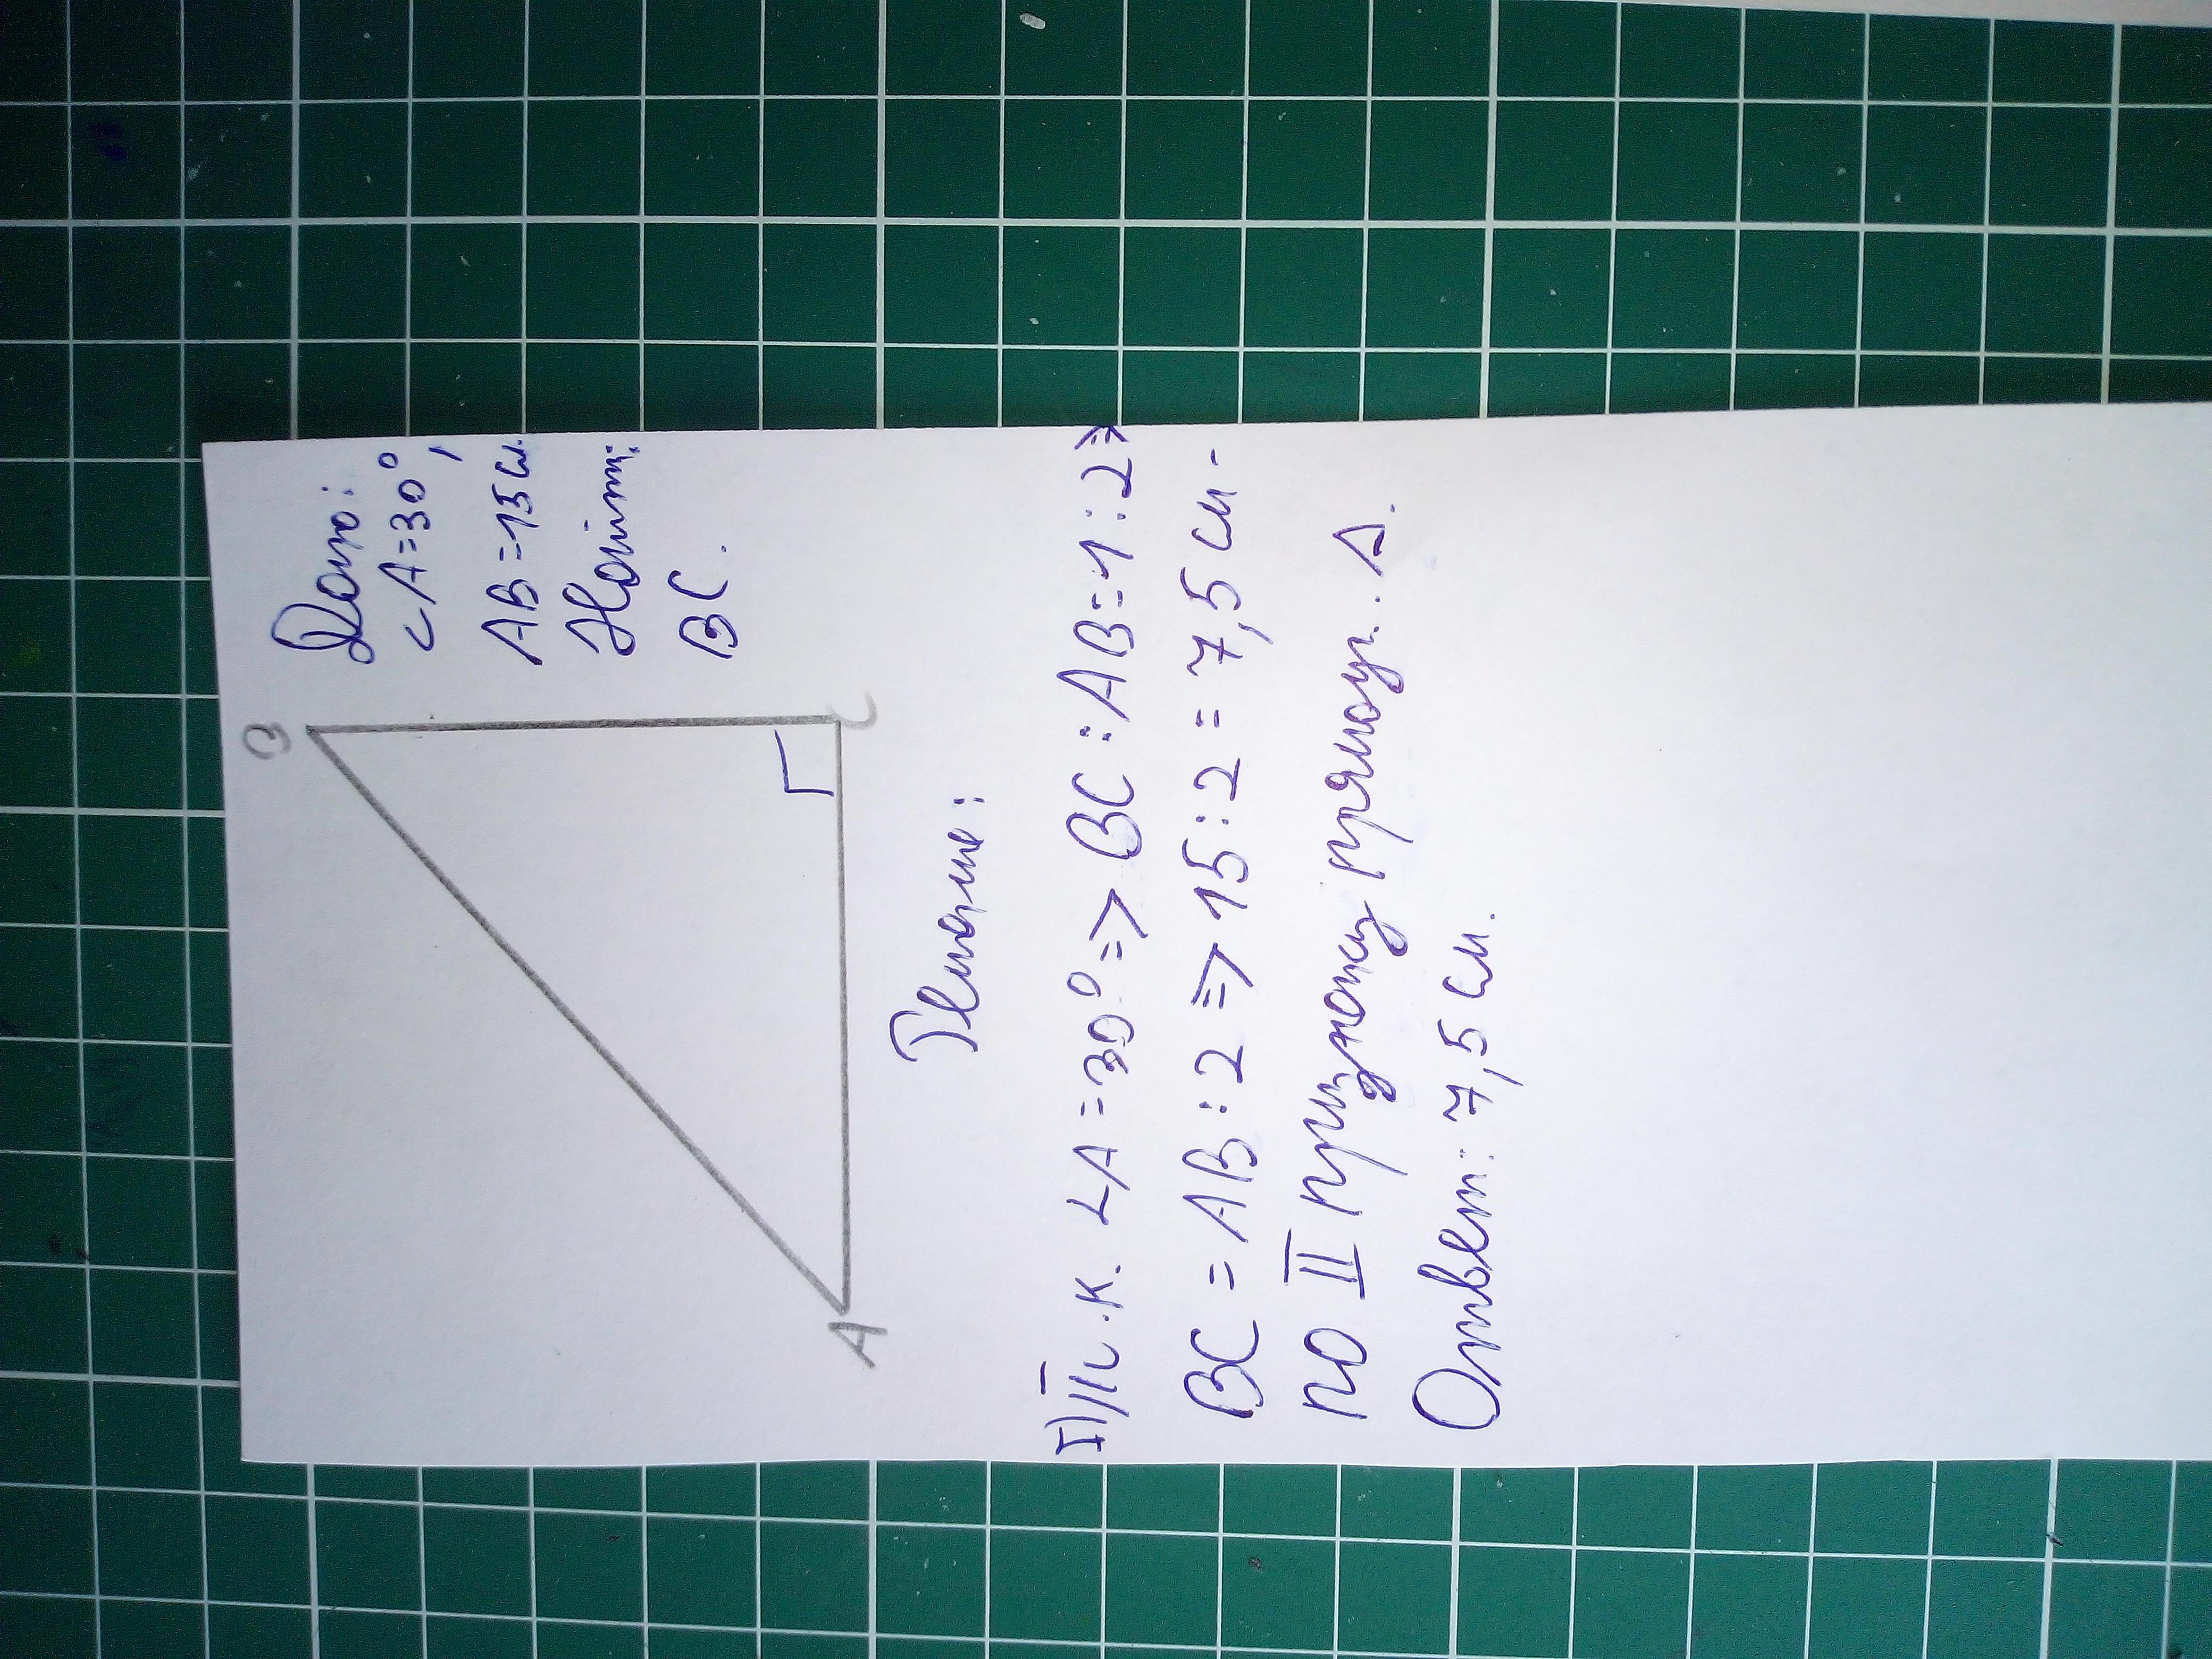 B
Дано:
∠A=30°,
AB=15см.
Найти:
BC.
A
C
Решение:
1) Т.к. ∠A=30°=> BC:AB=1:2=>
BC=AB:2=>15:2=7,5 см -
по II признаку прямоуг. Δ.
Ответ: 7,5 см.